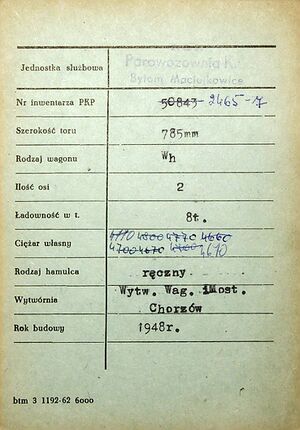 Parowozownia Kl.
Jednostka służbowa
Bytom Maciejkowice
Nr inwentarza PKP 50843 2465-7
Szerokość toru 785mm
Rodzaj wagonu Wh
Ilość osi 2
Ładowność w t. 8t.
4110 4800 4770 4660
Ciężar własny
4700 4670 4610
Rodzaj hamulca ręczny
Wytw. Wag. iMost.
Wytwórnia
Chorzów
Rok budowy 1948r.
btm 3 1192-62 6000